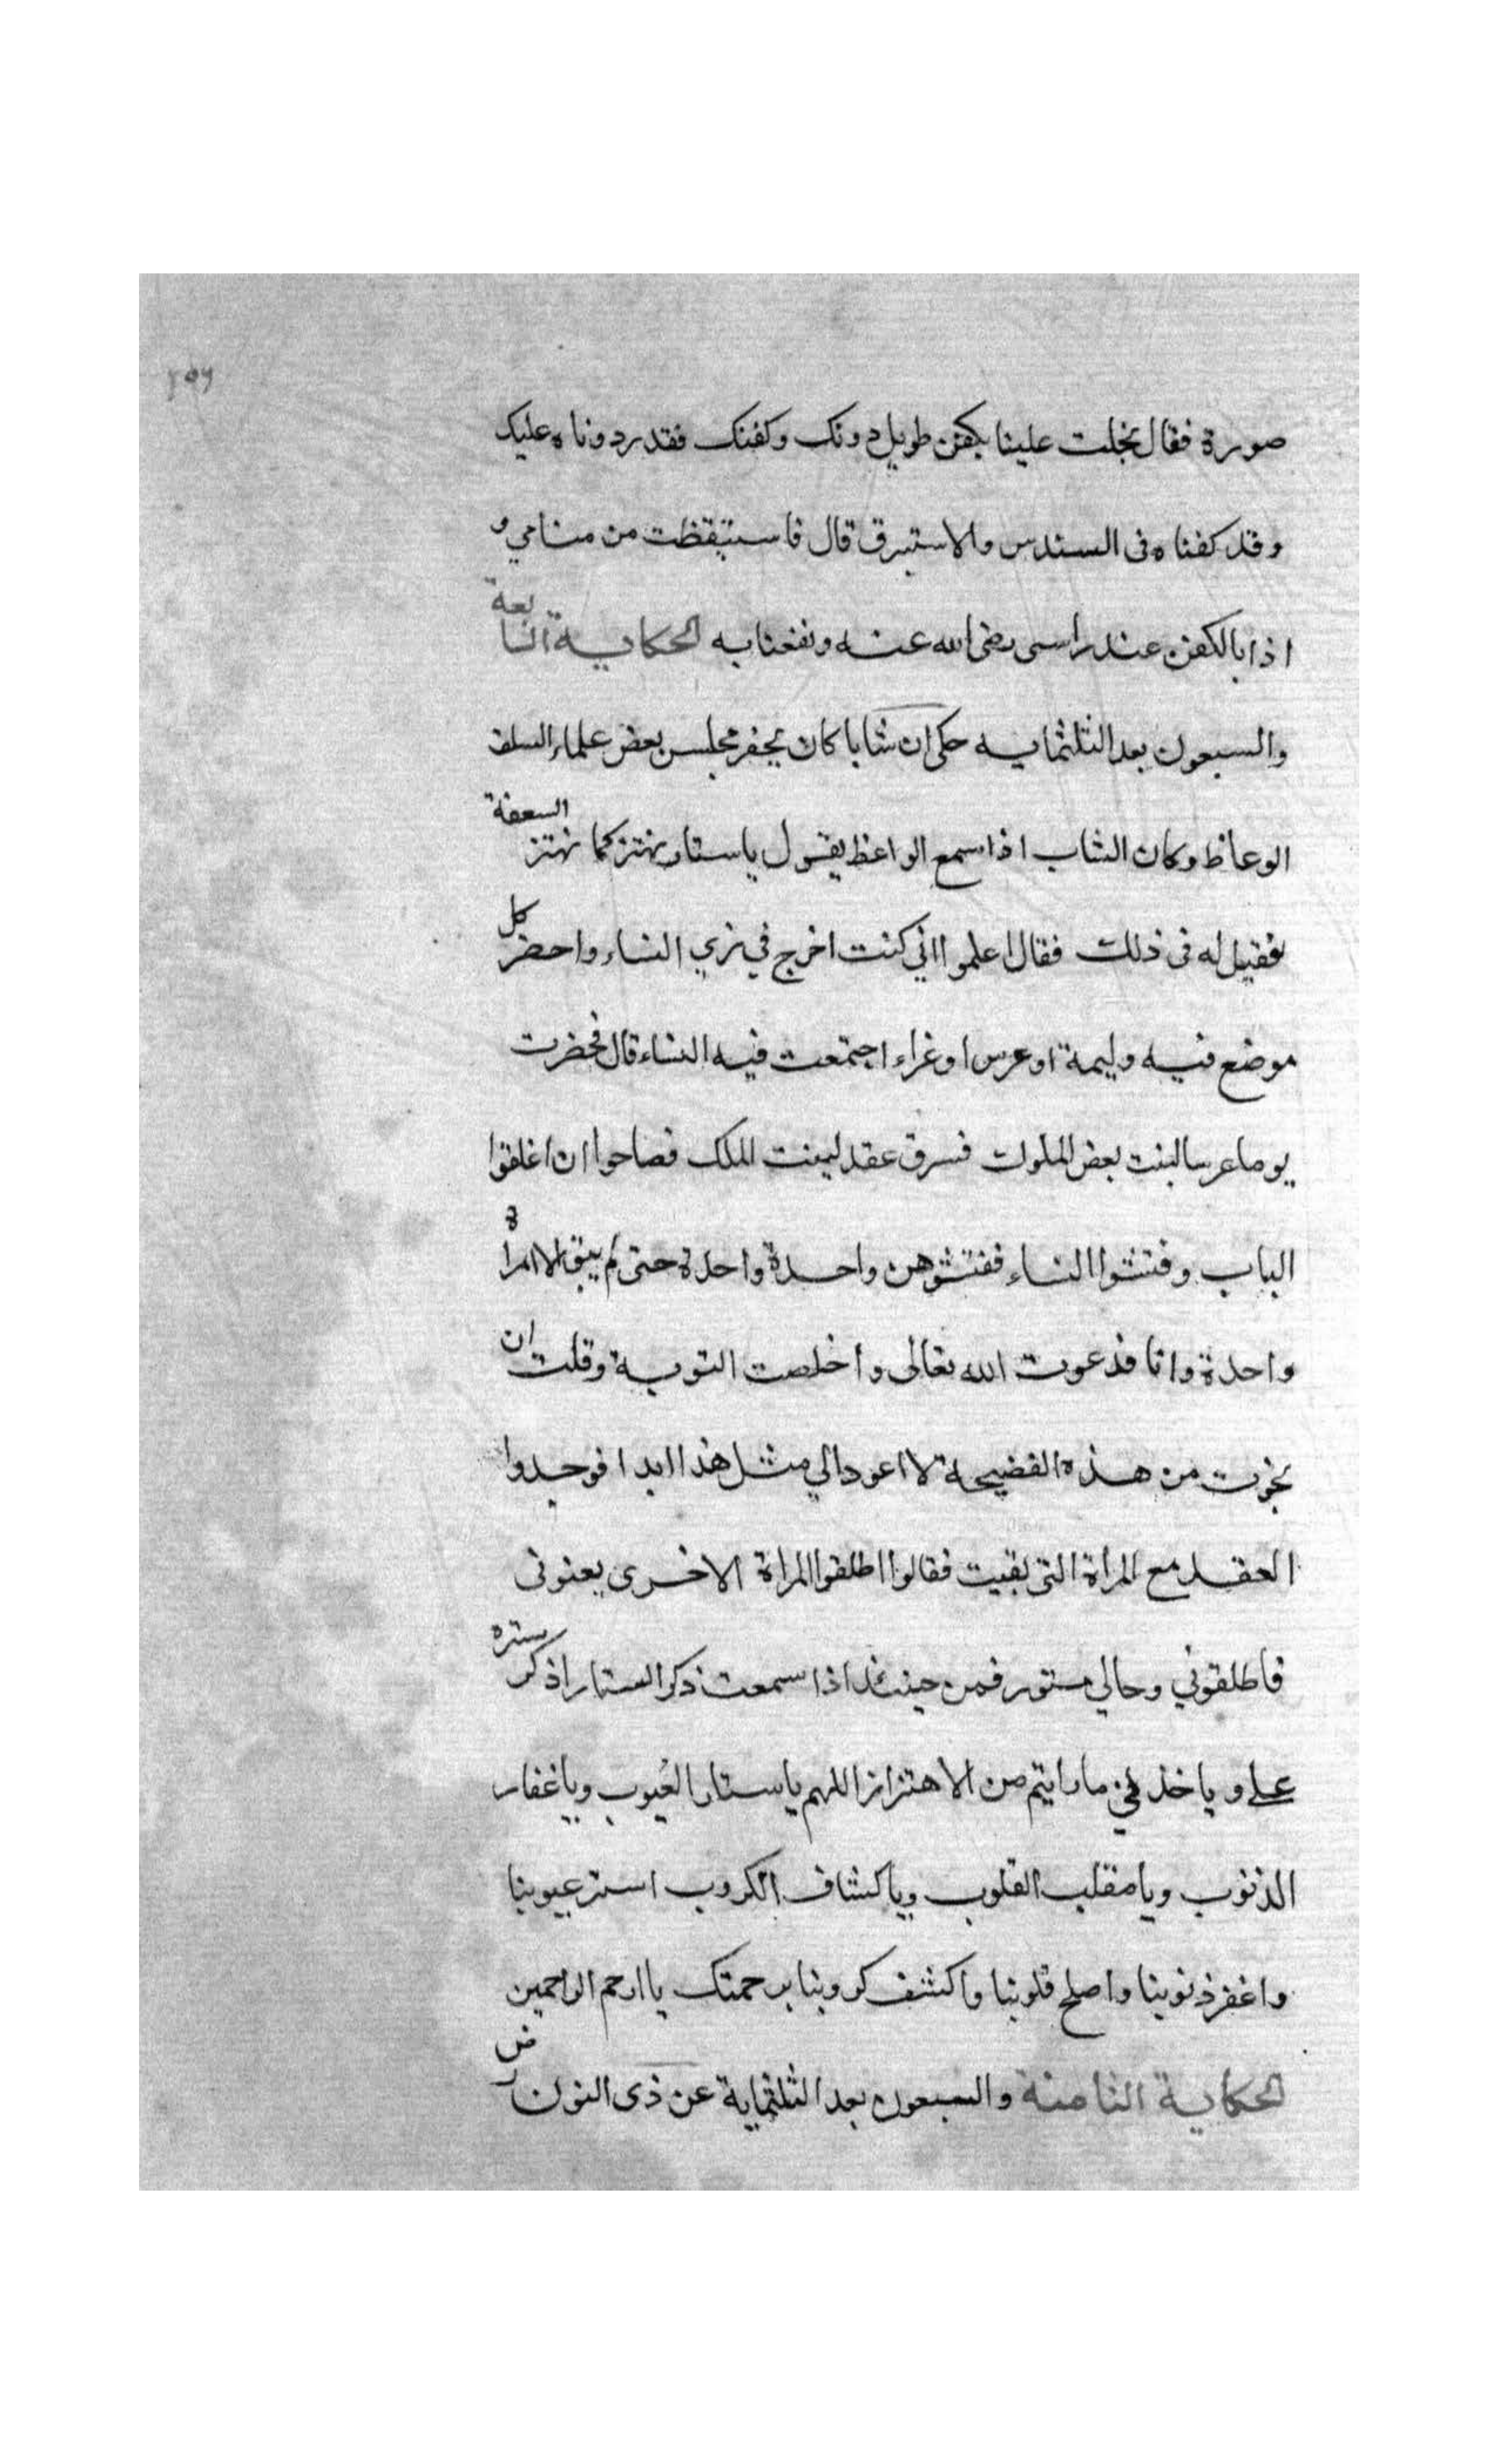 ٢٥٦
صورة فقال بخلت علينا بكفن طويل دونك وكفنك فقد رددناه عليك
وقد كفناه فى السندس والاستبرق قال فاستيقظت من منامي و
اذا بالكفن عند راسى رضى الله عنه ونفعنا به الحكاية السابعة
والسبعون بعد الثلثماية حكى ان شابا كان يحضر مجلس بعض علماء السلف
الوعاظ وكان الشاب اذا سمع الواعظ يقول يا ستار يهتز كما تهتز السعفة
فقيل له فى ذلك فقال اعلموا اني كنت اخرج في زي النساء واحضر كل
موضع فيه وليمة او عرس او عزاء اجتمعت فيه النساء قال فحضرت
يوما عرسا لبنت بعض الملوك فسرق عقد لبنت الملك فصاحوا ان اغلقوا
الباب وفتشوا النساء ففتشوهن واحدة واحدة حتى لم يبق الا امراة
واحدة وانا فدعوت الله تعالى واخلصت التوبة وقلت ان
نجوت من هذه الفضيحة لا اعود الي مثل هذا ابدا فوجدوا
العقد مع المراة التى بقيت فقالوا اطلقوا المراة الاخرى يعنونى
فاطلقوني وحالي مستور فمن حينئذ اذا سمعت ذكر الستار اذكر ستره
علي وياخذني ما رايتم من الاهتزاز اللهم يا ستار العيوب ويا غفار
الذنوب ويا مقلب القلوب ويا كشاف الكروب استر عيوبنا
واغفر ذنوبنا واصلح قلوبنا واكشف كروبنا برحمتك يا ارحم الراحمين
الحكاية الثامنة والسبعون بعد الثلثماية عن ذى النون رض